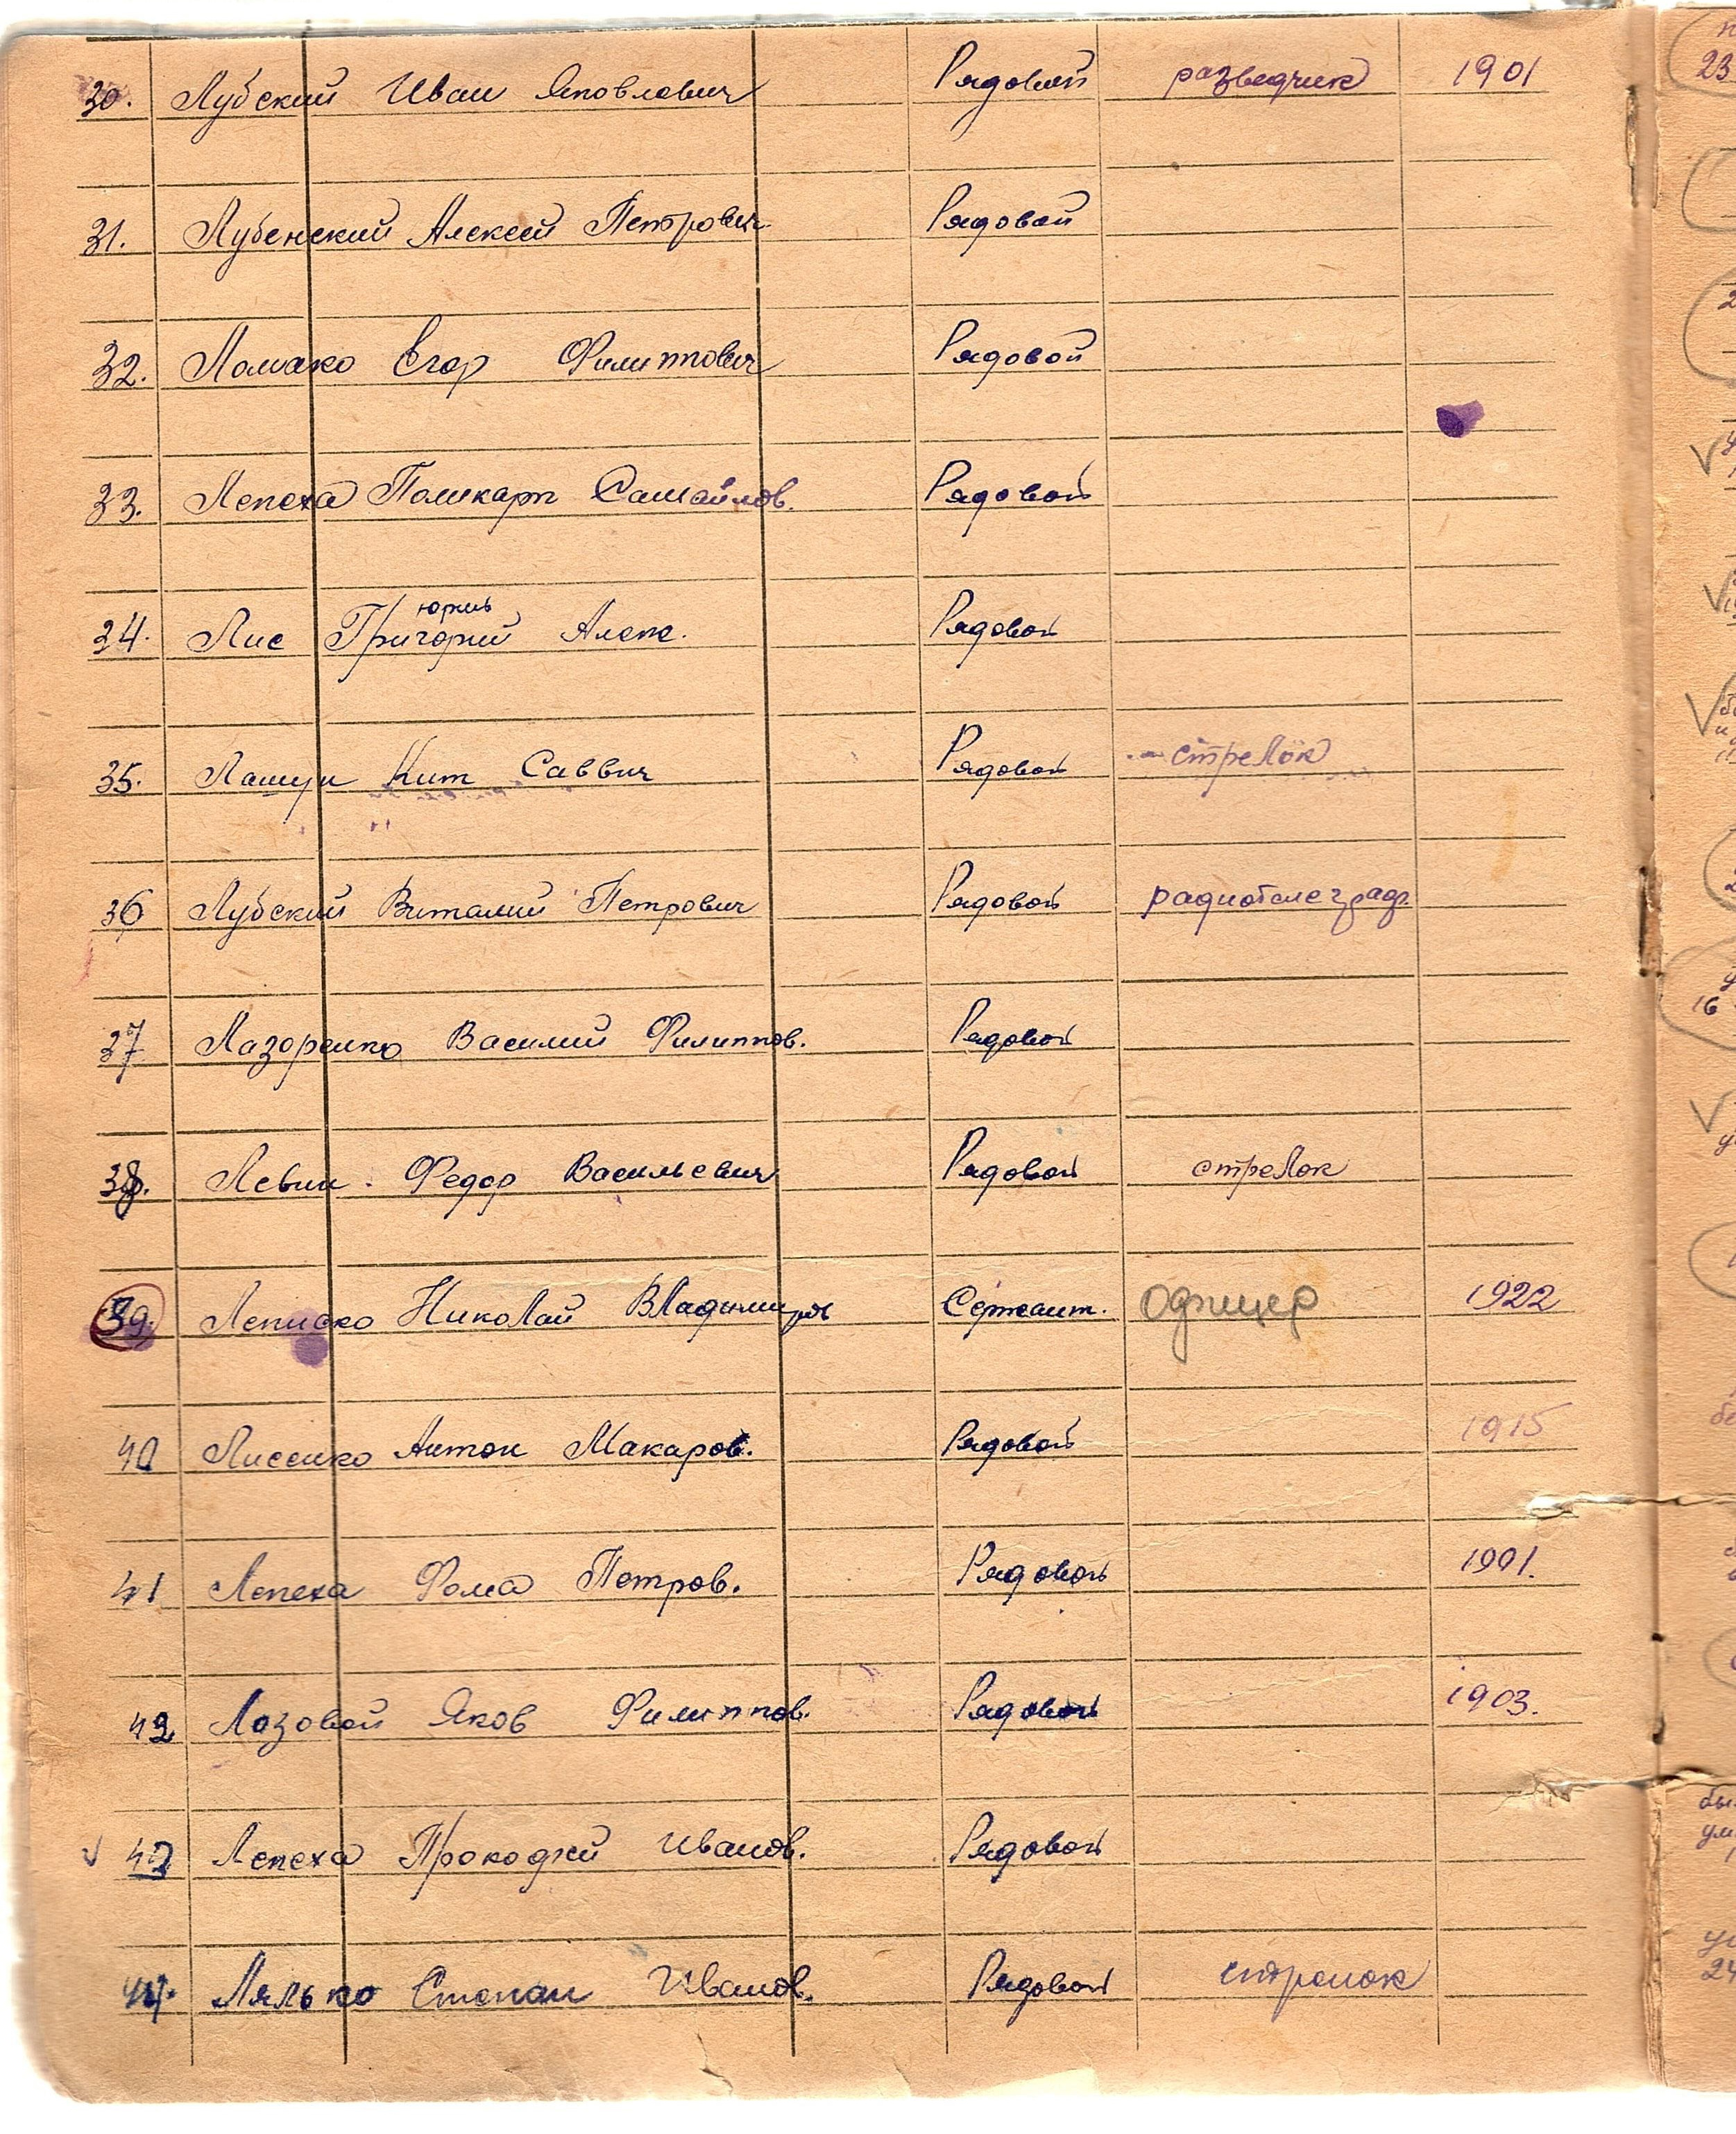 30. Лубский Иван Яковлевич Рядовой разведчик 1901
31. Лубенский Алексей Петрович Рядовой
32. Ломако Егор Филиппович Рядовой
33. Лепеха Поликарп Самойлов. Рядовой
юрив
34. Лис Григорий Алекс. Рядовой
35. Лащун Кит Саввич Рядовой стрелок
36 Лубский Виталий Петрович Рядовой радиотелеграф.
37 Лазоренко Василий Филиппов. Рядовой
38. Левин. Федор Васильевич Рядовой стрелок
39. Николай Сержант. Офицер 1922
40 Лисенко Антон Макаров. Рядовой 1915
41 Лепеха Фома Петров. Рядовой 1901.
42 Лозовой Яков Филиппов. Рядовой 1903.
43 Лепеха Прокофий Иванов. Рядовой
44. Лялько Степан Иванов. Рядовой стрелок
23
16